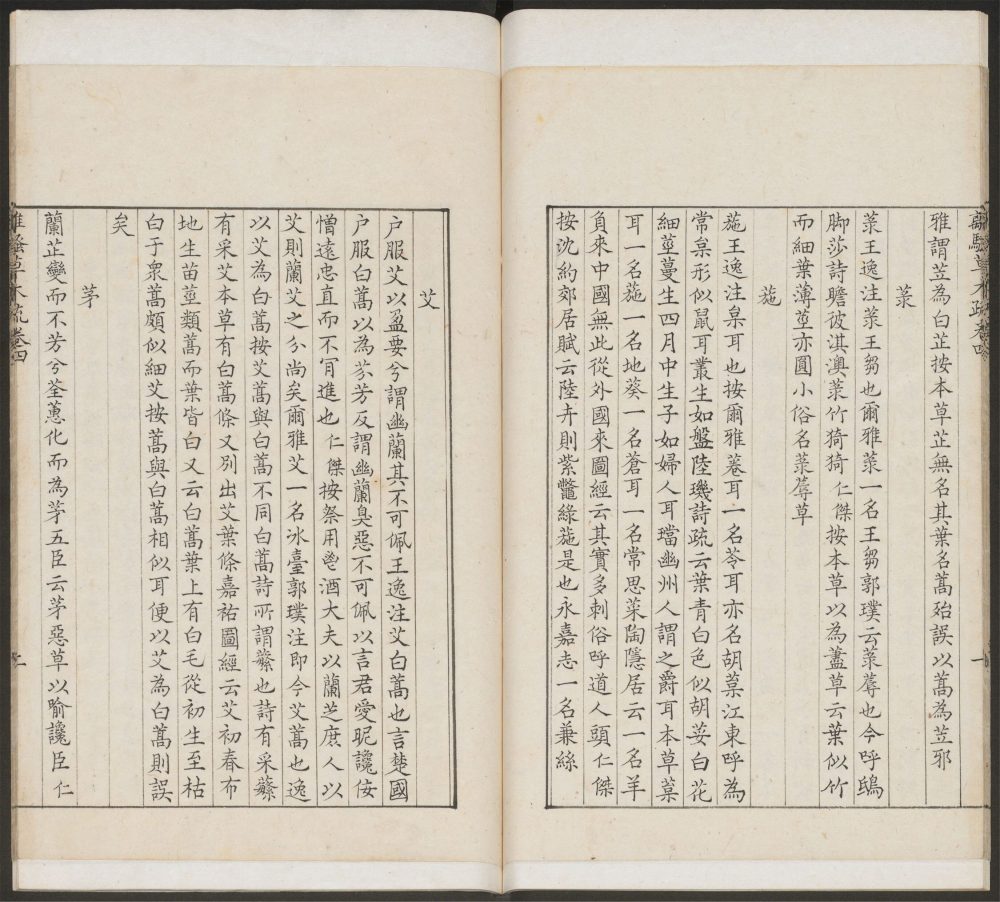 離騷草木疏卷四
雅謂苙為白芷按本草芷無名其葉名蒚殆誤以蒚為苙邪
菉
菉王逸注菉王芻也爾雅菉一名王芻郭璞云菉蓐也今呼鴟
脚莎詩瞻彼淇澳菉竹猗猗仁傑按本草以為藎草云葉似竹
而細葉薄莖亦圓小俗名菉蓐草
葹
葹王逸注枲耳也按爾雅菤耳一名苓耳亦名胡菒江東呼為
常枲形似鼠耳叢生如盤陸璣詩疏云葉青白色似胡荽白花
細莖蔓生四月中生子如婦人耳璫幽州人謂之爵耳本草菒
耳一名葹一名地葵一名蒼耳一名常思菜陶隱居云一名羊
負來中國無此從外國來圖經云其實多刺俗呼道人頭仁傑
按沈約郊居賦云陸卉則紫虌綠葹是也永嘉志一名兼絲
艾
户服艾以盈要兮謂幽蘭其不可佩王逸注艾白蒿也言楚國
户服白蒿以為芬芳反謂幽蘭臭惡不可佩以言君愛昵讒佞
憎遠忠直而不肎進也仁傑按祭用鬯酒大夫以蘭芝庶人以
艾則蘭艾之分尚矣爾雅艾一名冰臺郭璞注即今艾蒿也逸
以艾為白蒿按艾蒿與白蒿不同白蒿詩所謂蘩也詩有采蘩
有采艾本草有白蒿條又别出艾葉條嘉祐圖經云艾初春布
地生苗莖類蒿而葉皆白又云白蒿葉上有白毛從初生至枯
白于衆蒿頗似細艾按蒿與白蒿相似耳便以艾為白蒿則誤
矣
茅
蘭芷變而不芳兮荃蕙化而為茅五臣云茅惡草以喻讒臣仁
離騷草木疏卷四
二